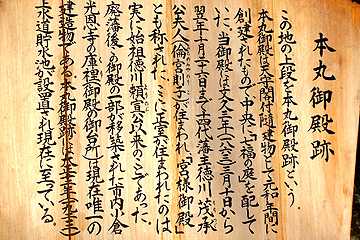 本丸御殿跡
この地の上段を本丸御殿跡という。
本丸御殿は天守閣付随建物として元和年間に
創建されたもので中央に「福の庭」を配して
いた。当御殿は文久三年(一八六三)三月十日から
翌年十月二六日まで十四代藩主徳川茂承
公夫人(倫宮則子)が住まわれ「宮様御殿」
とも称された。ここに正室が住まわれたのは
実に始祖徳川頼宣公以来のことであった。
廃藩後この御殿の一部が移築された市内小倉
光恩寺の庫裡(御殿の御台所)は現在唯一の
建造物である。本御殿跡には大正十二年(一九二三)
上水道貯水池が設置され現在に至っている。